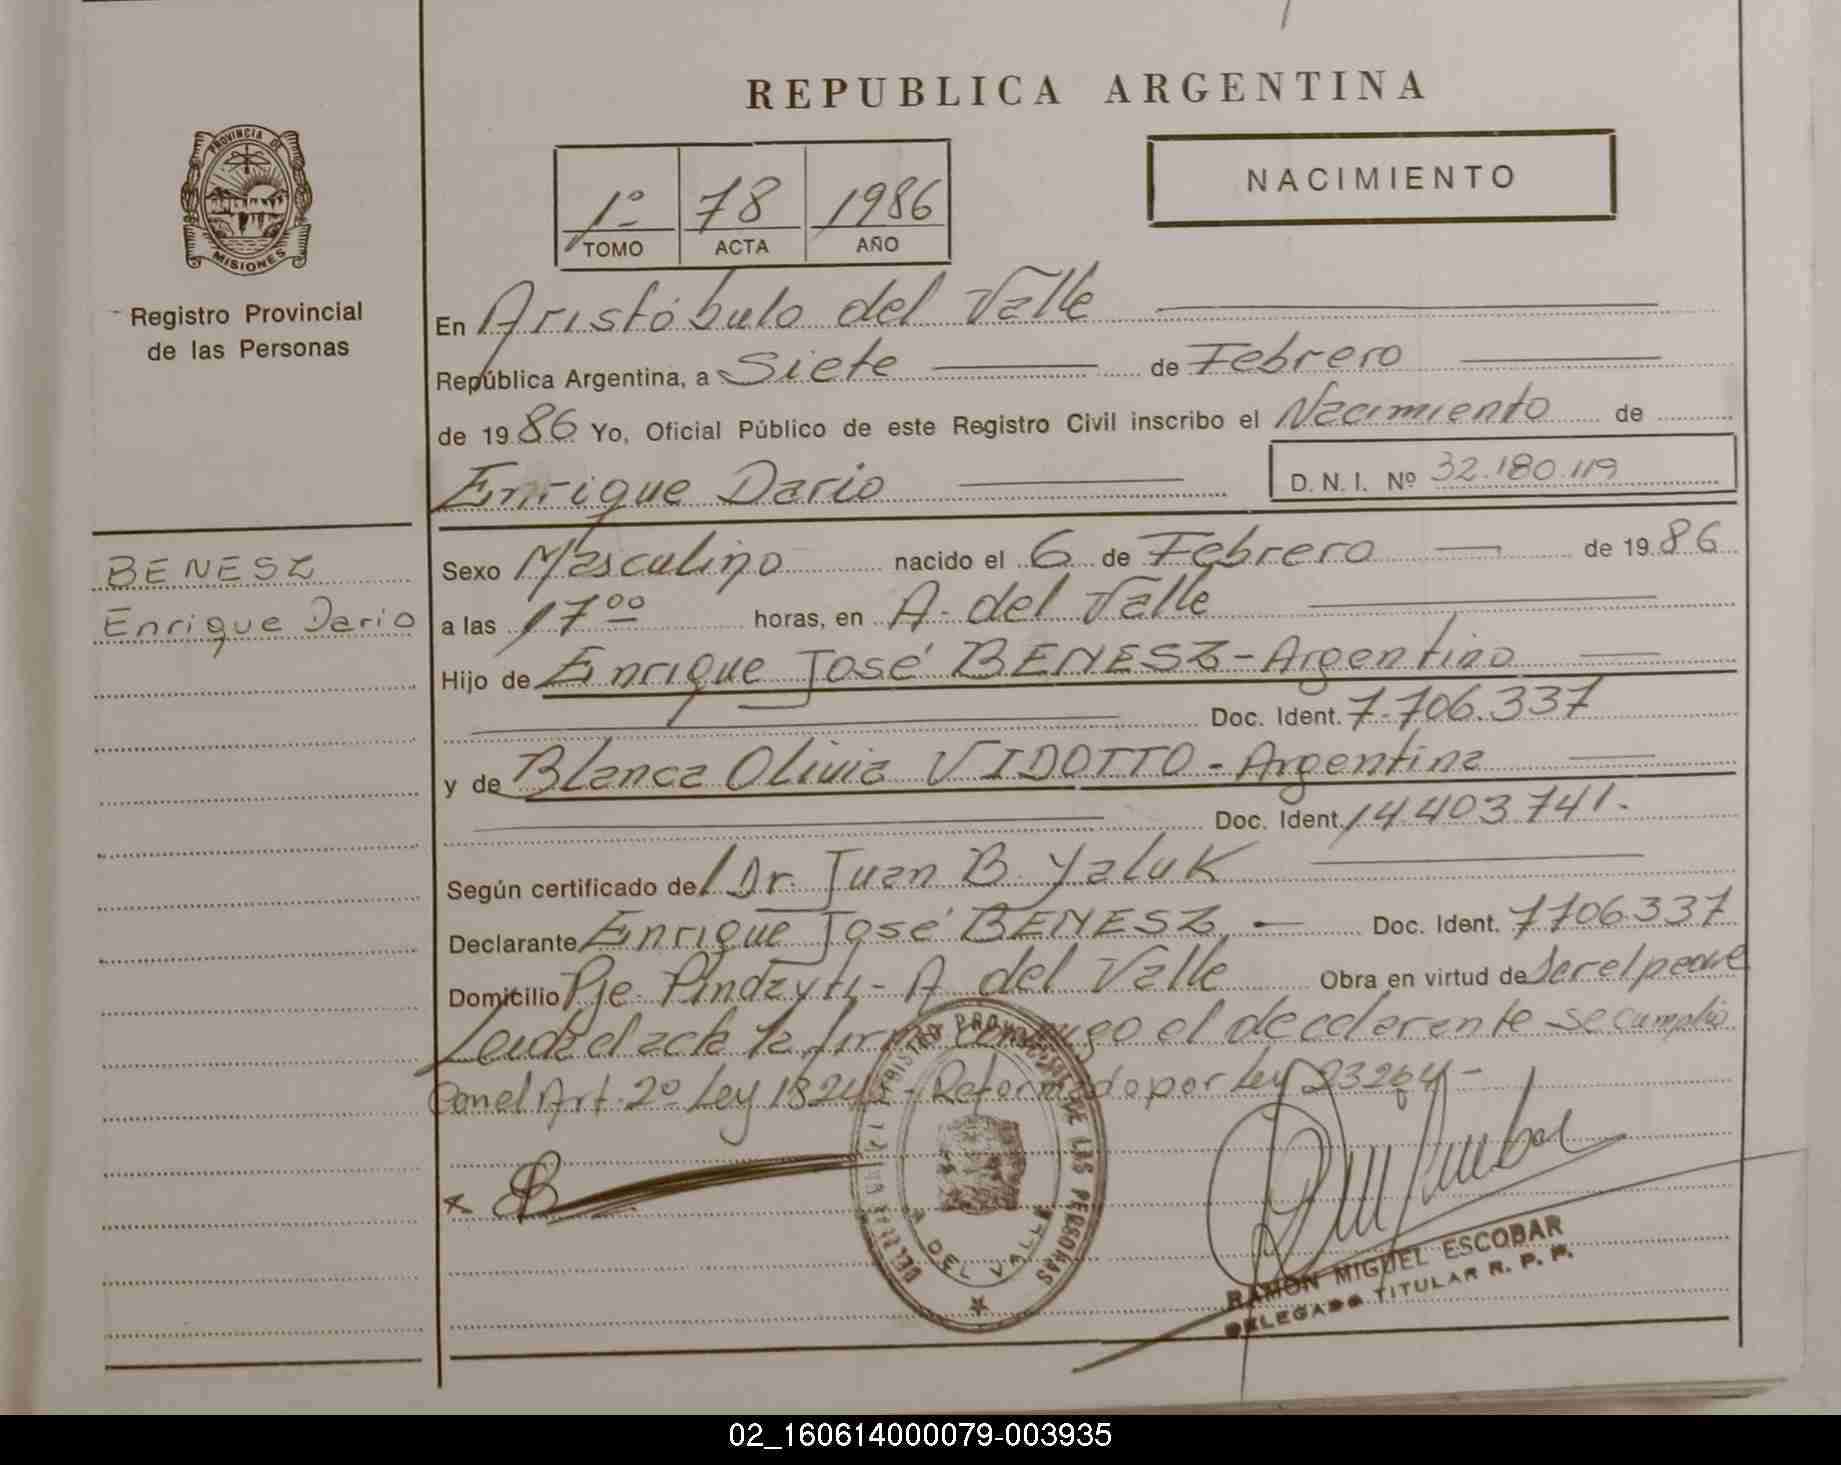 REPUBLICA ARGENTINA
PROVINCIA DE
MISIONES
Registro Provincial
de las Personas
1º 78 1986
TOMO ACTA AÑO
NACIMIENTO
En Aristóbulo del Valle
República Argentina, a Siete de Febrero
de 1986 Yo, Oficial Público de este Registro Civil inscribo el Nacimiento de
Enrique Dario D. N. I. Nº 32.180.119
BENESZ
Enrique Dario
Sexo Masculino nacido el 6 de Febrero de 1986
a las 17⁰⁰ horas, en A. del Valle
Hijo de Enrique José BENESZ - Argentino
Doc. Ident. 7.706.337
y de Blanca Olivia VIDOTTO - Argentina
Doc. Ident. 14.403.741.
Según certificado de Dr. Juan B. Yaluk
Declarante Enrique José BENESZ - Doc. Ident. 7706.337
Domicilio Pje. Pindayti - A del Valle Obra en virtud de Ser el padre
Leida el acta la firma conmigo el declarante se cumplio
con el Art. 2º Ley 18248 - Reformado por Ley 23264 -
REGISTRO PROVINCIAL DE LAS PERSONAS
A DEL VALLE
RAMON MIGUEL ESCOBAR
DELEGADO TITULAR R. P. P.
02_160614000079-003935